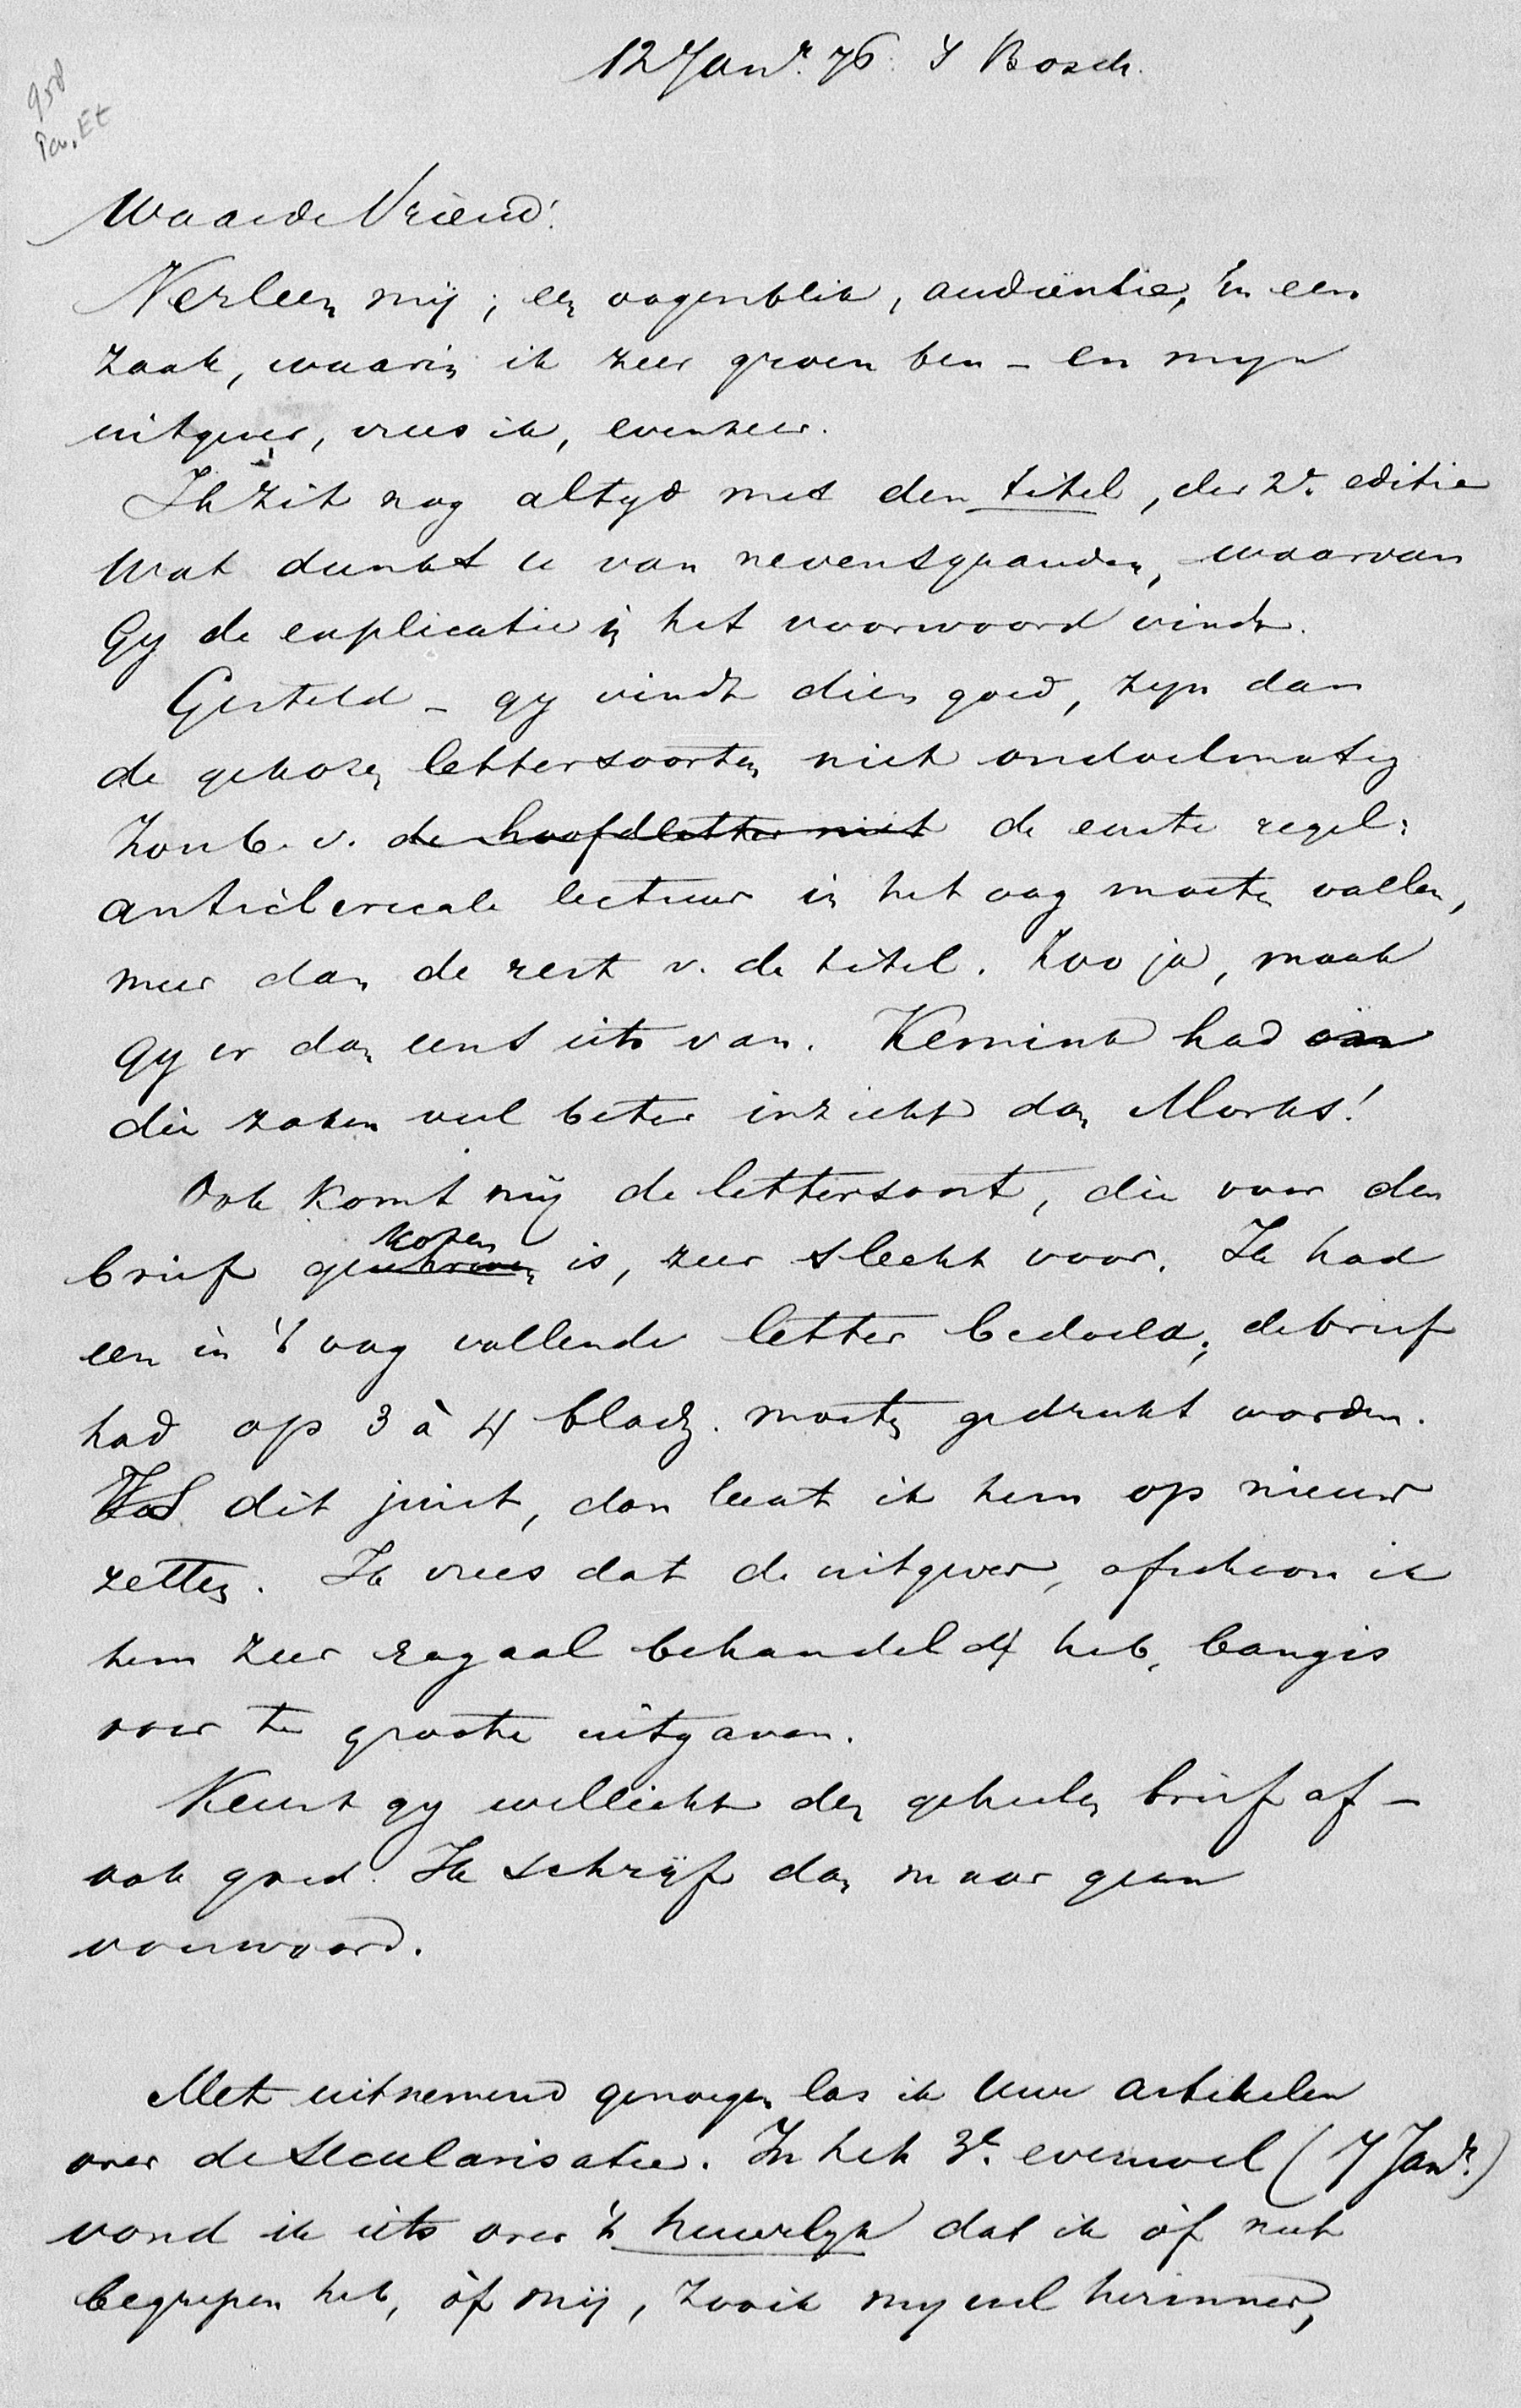 12 Janr. 76. 's Bosch.
958
Pa. Et
Waarde Vriend!
Verleen mij, een oogenblik, audiëntie, in een
zaak, waarin ik zeer groen ben – en mijn
uitgever, vrees ik, evenzeer.
Ik zit nog altijd met den titel, der 2e. editie
Wat dunkt u van nevensgaanden, waarvan
Gij de explicatie in het voorwoord vindt.
Gesteld – gij vindt dien goed, zijn dan
de gekozen lettersoorten niet ondoelmatig
Zou b. v. de hoofdletter niet de eerste regel:
anticlericale lectuur in het oog moeten vallen,
meer dan de rest v. de titel. Zoo ja, maak
gij er dan eens iets van. Kemink had van
die zaken veel beter inzicht dan Morks!
Ook komt mij de lettersoort, die voor den
brief gekozen is, zeer slecht voor. Ik had
een in 't oog vallende letter bedoeld; de brief
had op 3 à 4 bladz. moeten gedrukt worden.
Is dit juist, dan laat ik hem op nieuw
zetten. Ik vrees dat de uitgever, ofschoon ik
hem zeer royaal behandeld heb, bang is
voor te groote uitgaven.
Keurt gij wellicht den geheelen brief af –
ook goed. Ik schrijf dan maar geen
voorwoord.
Met uitnemend genoegen las ik Uwe artikelen
over de Secularisatie. In het 3e. evenwel (7 Janr.)
vond ik iets over 't huwelijk dat ik òf niet
begrepen heb, òf mij, zoo ik mij wel herinner,